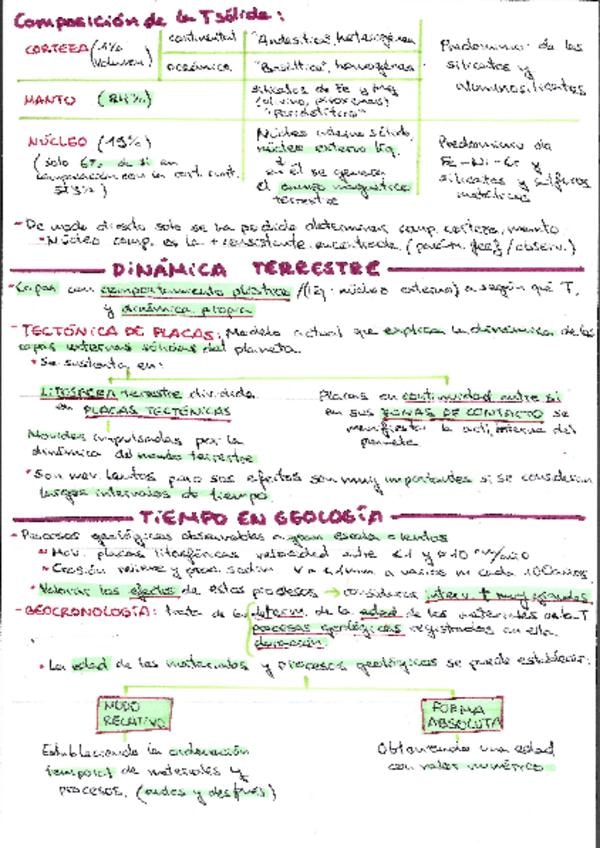 Composición de la T sólida:
CORTEZA (1% volumen) continental "Andesítica", heterogénea Predominio de los silicatos y aluminosilicatos
oceánica "Basáltica", homogénea
MANTO (84%) silicatos de Fe y Mg (olivino, piroxenos) "Peridotítico"
NÚCLEO (15%) Núcleo interno sólido, Predominio de
(solo en comparación con la núcleo externo líq. Fe-Ni- y
en él se genera silicatos y sulfuros
el campo magnético metálicos
terrestre
- De modo directo solo se ha podido determinar comp. corteza, manto
• Núcleo comp. es la + consistente encontrada
DINÁMICA TERRESTRE
- Capas con comportamiento plástico /líq. (núcleo externo) según T,
y dinámica propia
- TECTÓNICA DE PLACAS: Modelo actual que explica la dinámica de las
capas externas sólidas del planeta.
• Se sustenta en:
LITOSFERA terrestre dividida Placas en continuidad entre sí
en PLACAS TECTÓNICAS en sus ZONAS DE CONTACTO se
manifiesta la act. interna del
Movidas impulsadas por la planeta
dinámica del manto terrestre
• Son mov. lentos pero sus efectos son muy importantes si se consideran
largos intervalos de tiempo.
TIEMPO EN GEOLOGÍA
- Procesos geológicos observables a gran escala lentos
Mov. placas litosféricas velocidad entre <1 y 10 cm/año
Erosión relieve y prod. sedim. a varios m cada 1000 años
• Valorar los efectos de estos procesos → considerar interv. t muy grandes
- GEOCRONOLOGÍA: trata de la determ. de la edad de los materiales de la T
procesos geológicos registrados en ella
duración
• La edad de los materiales y procesos geológicos se puede establecer:
MODO FORMA
RELATIVO ABSOLUTA
Estableciendo la ordenación Obteniendo una edad
temporal de materiales y con valor numérico
procesos. (antes y después)